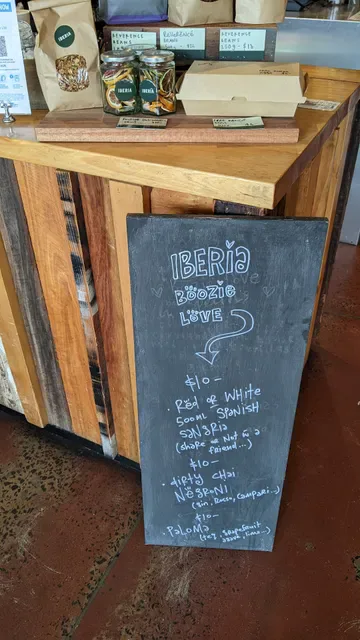 IBERIA
IBERIA
IBERIA
REVERENCE
BEANS
REVERENCE
BEANS
250g - $18
IBERIA
BOOZIE
LOVE
$10-
• Red or White
500ml SPANISH
SANGRIA
(share or Not w a
friend...)
$10-
• dirty CHai
NEGRONI
(gin, Rosso, Campari...)
$10-
PaLOMa
(teq, grapefruit
lime...)